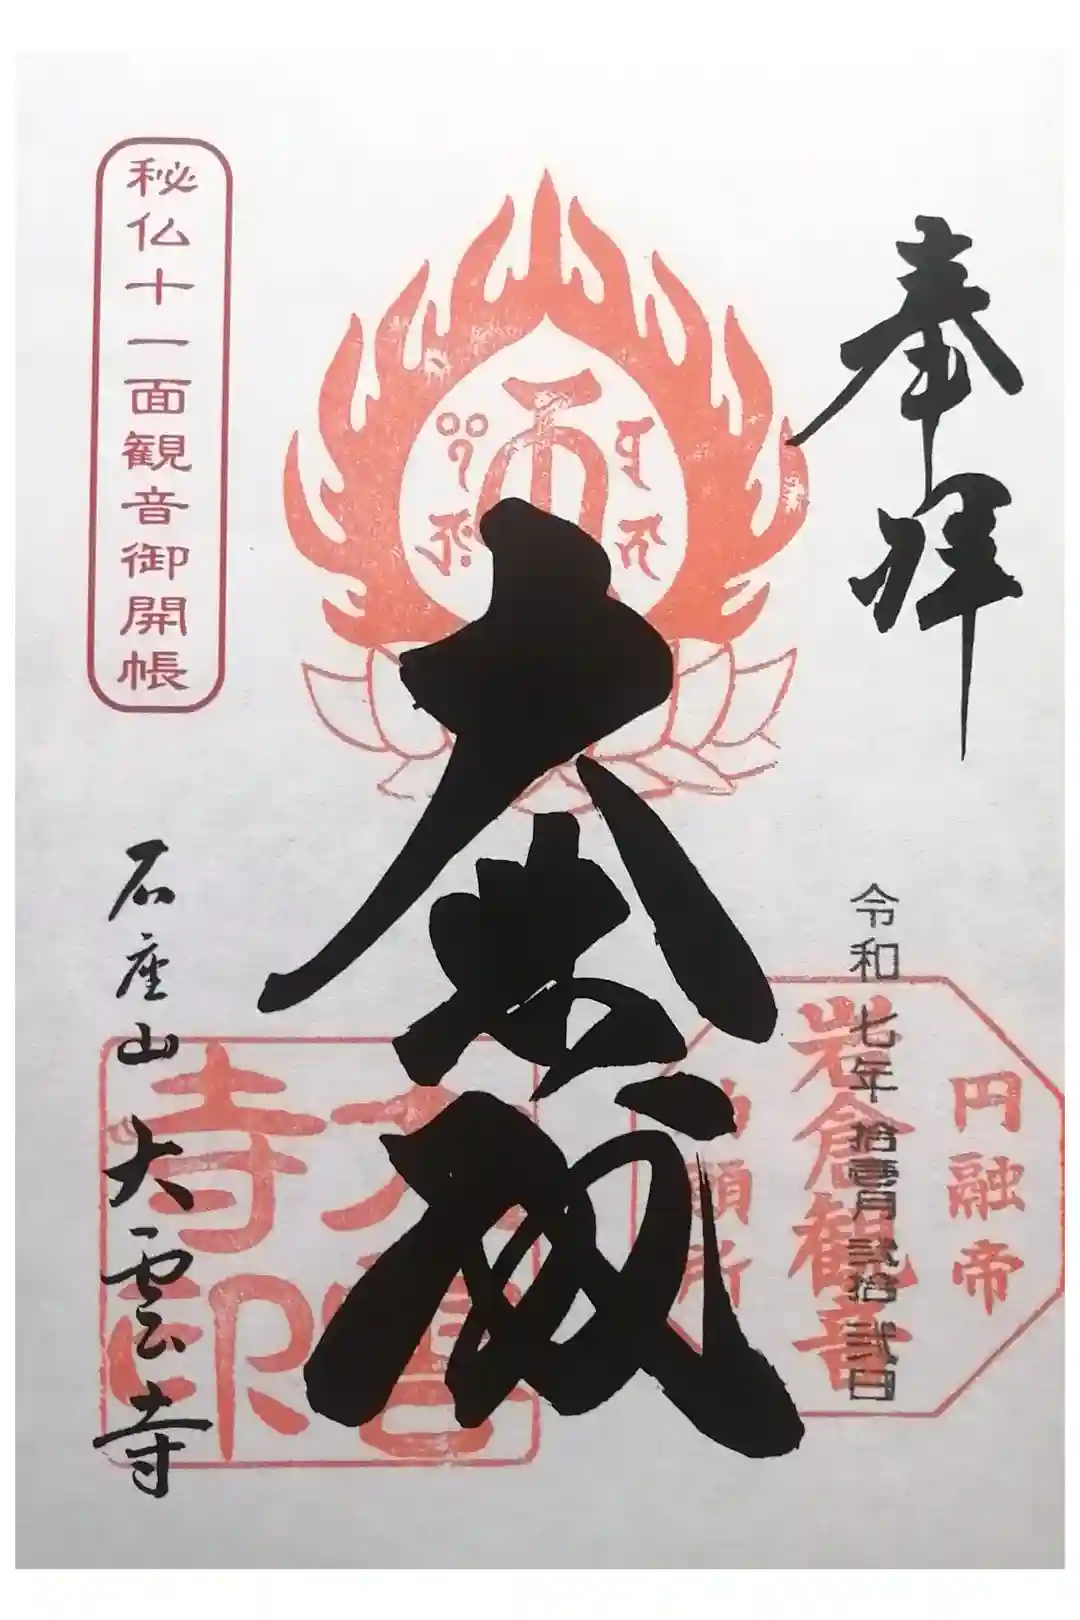 奉拝
令和七年拾壹月弐拾弐日
円融帝
岩倉観音
願所
大
大雲寺印
秘仏十一面観音御開帳
石座山大雲寺